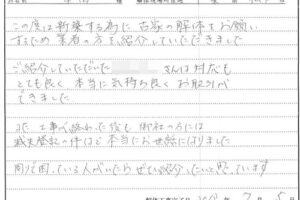 この度は新築する為に古家の解体をお願い
するため業者の方を紹介していただきました
ご紹介していただいた さんは対応も
とても良く本当に気持ち良くお取引が
できました
又、工事が終わった後も御社の方には
滅失登記の件ほど本当にお世話になりました
周りで困っている人がいたらぜひ紹介したいと思っています
年 7月 5日